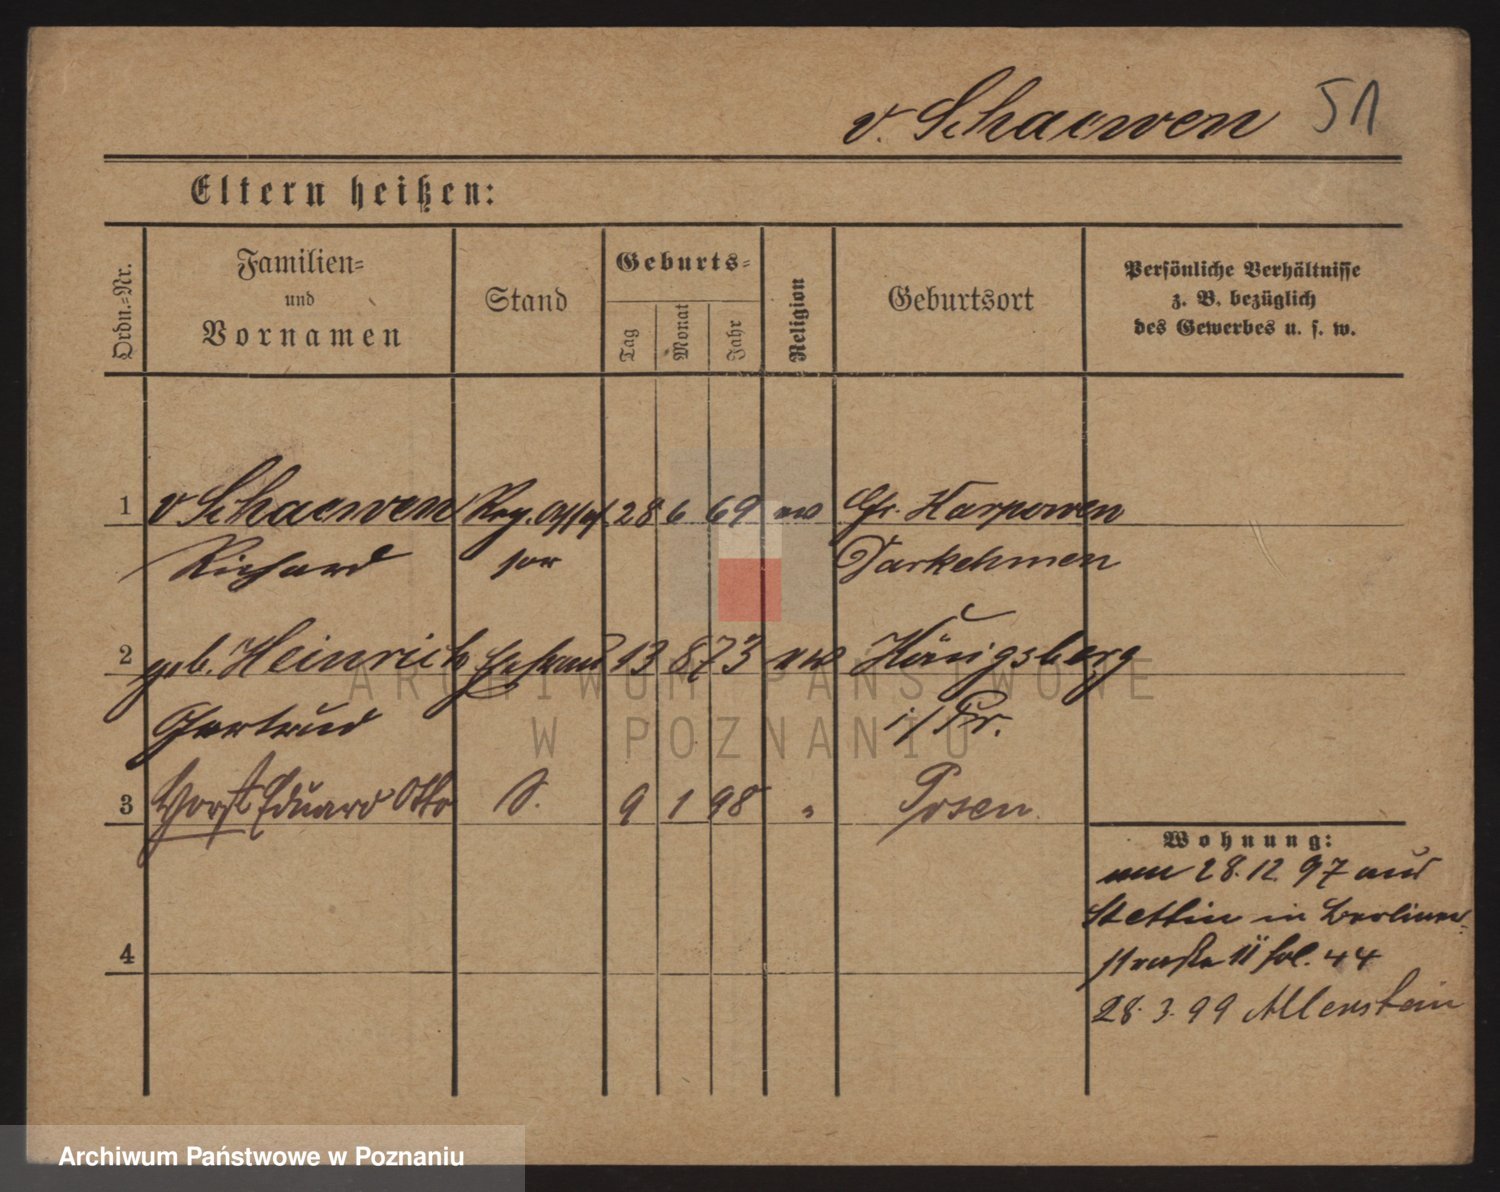 v. Schaewen 51
Eltern heißen:
Ordn.-Nr.
Familien-
und
Vornamen
Stand
Geburts-
Tag
Monat
Jahr
Religion
Geburtsort
Persönliche Verhältnisse
z. B. bezüglich
des Gewerbes u. s. w.
1 v Schaewen Reg. Assess 28 6 69 ev Gr. Karpowen
Richard sor Darkehmen
2 geb. Heinrich Ehefrau 13 8 73 ev Königsberg
Gertrud i/Pr.
3 Horst Eduard Otto S. 9 1 98 " Posen
Wohnung:
am 28.12.97 aus
Stettin in Berliner-
straße 11 fol. 44
4
28.3.99 Allenstein
ARCHIWUM PAŃSTWOWE
W POZNANIU
Archiwum Państwowe w Poznaniu